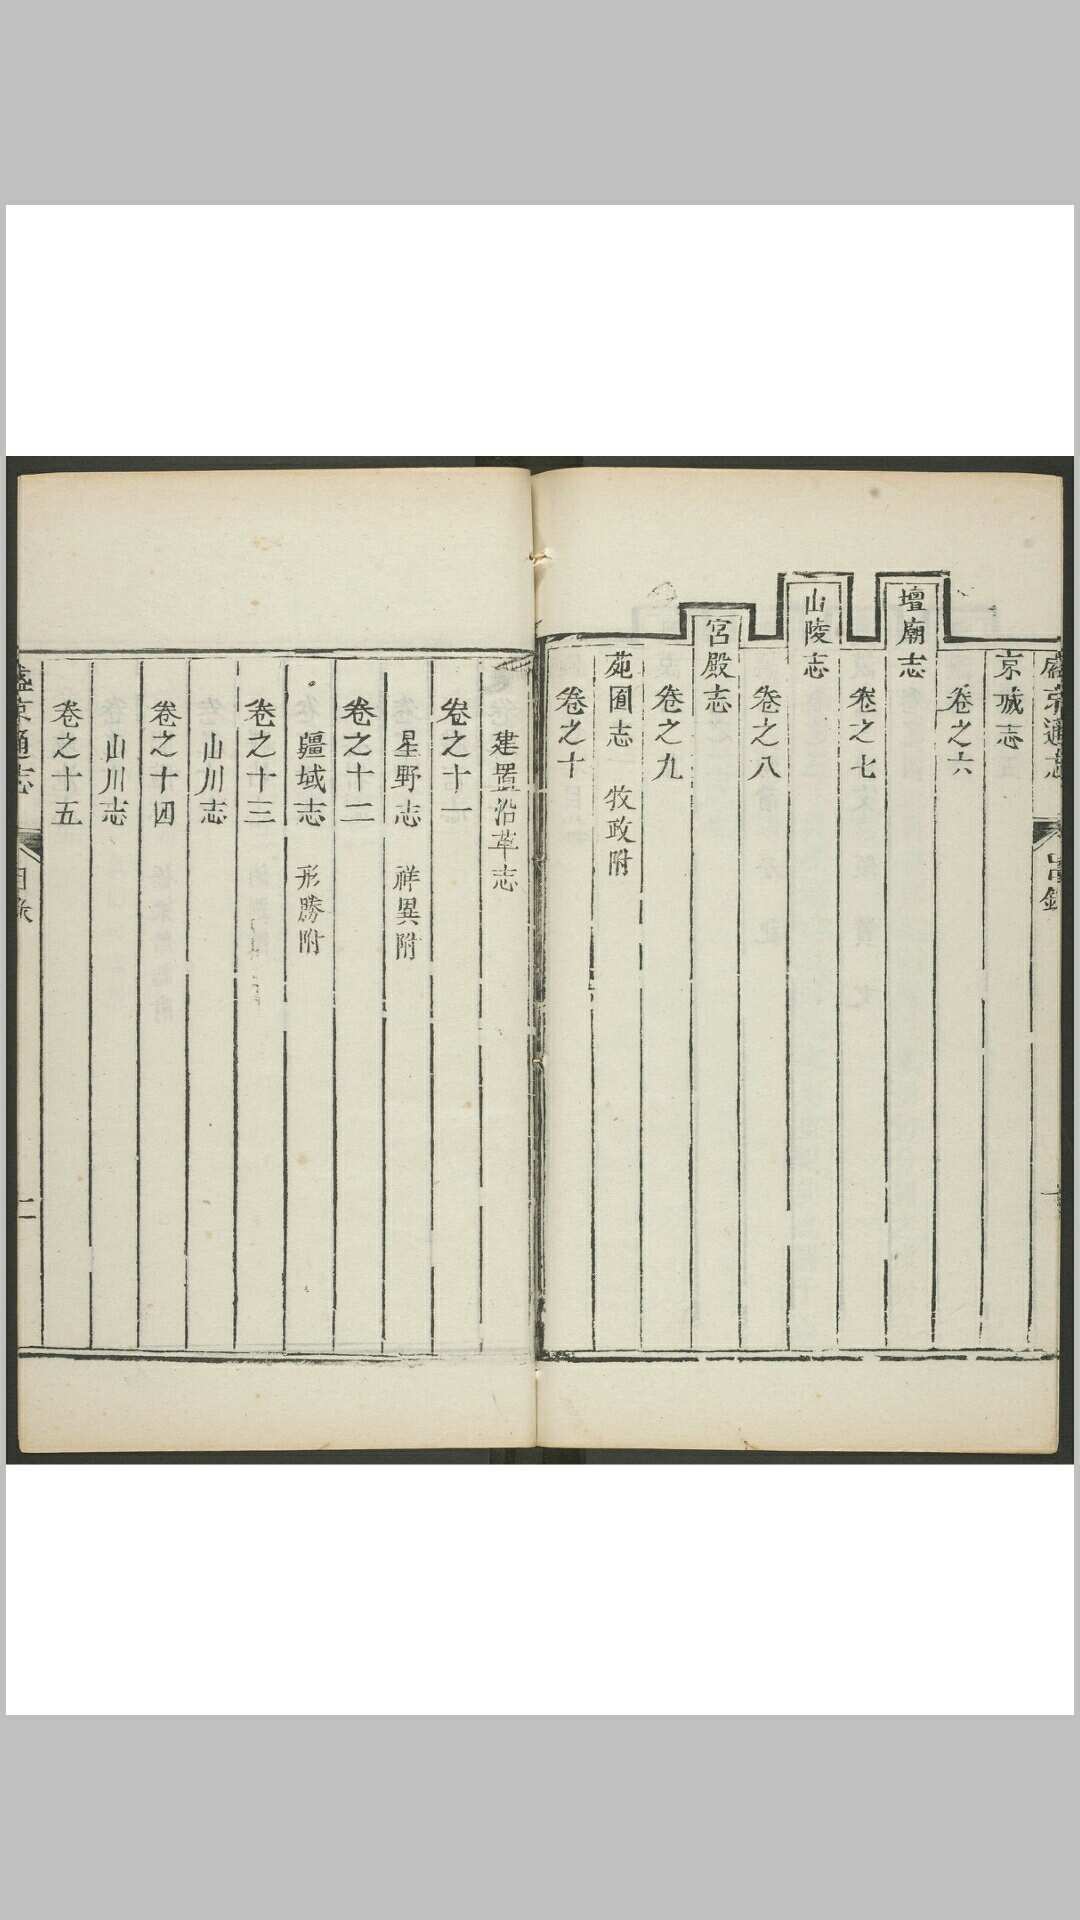 盛京通志 目錄
京城志
卷之六
壇廟志
卷之七
山陵志
卷之八
宮殿志
卷之九
苑囿志 牧政附
卷之十
建置沿革志
卷之十一
星野志 祥異附
卷之十二
疆域志 形勝附
卷之十三
山川志
卷之十四
山川志
卷之十五
盛京通志 目錄 二